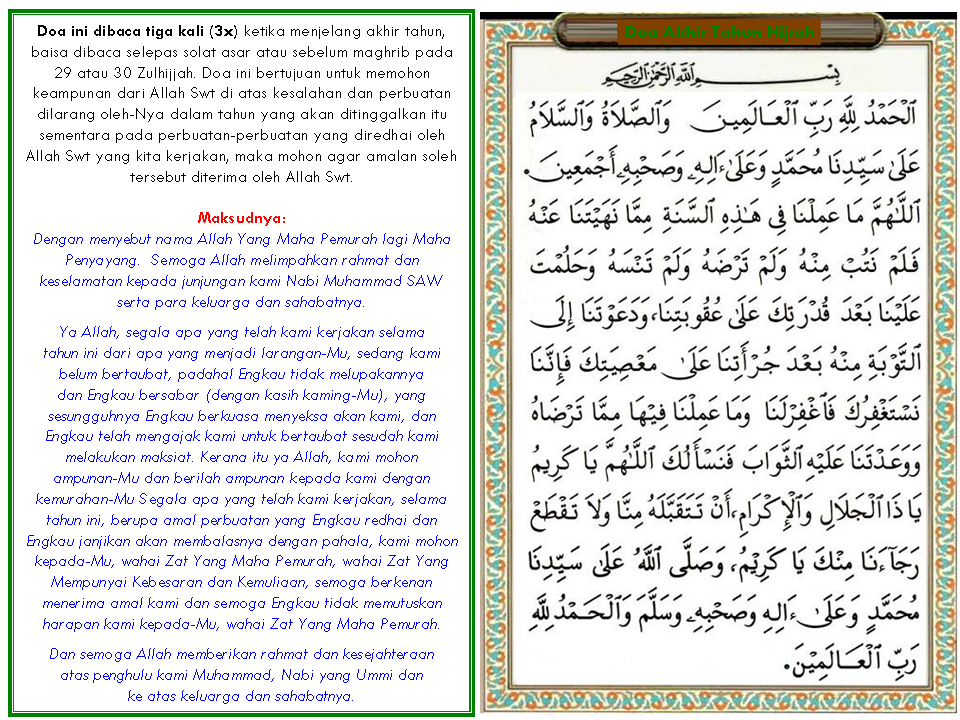 Doa ini dibaca tiga kali (3x) ketika menjelang akhir tahun,
baisa dibaca selepas solat asar atau sebelum maghrib pada
29 atau 30 Zulhijjah. Doa ini bertujuan untuk memohon
keampunan dari Allah Swt di atas kesalahan dan perbuatan
dilarang oleh-Nya dalam tahun yang akan ditinggalkan itu
sementara pada perbuatan-perbuatan yang diredhai oleh
Allah Swt yang kita kerjakan, maka mohon agar amalan soleh
tersebut diterima oleh Allah Swt.
Maksudnya:
Dengan menyebut nama Allah Yang Maha Pemurah lagi Maha
Penyayang. Semoga Allah melimpahkan rahmat dan
keselamatan kepada junjungan kami Nabi Muhammad SAW
serta para keluarga dan sahabatnya.
Ya Allah, segala apa yang telah kami kerjakan selama
tahun ini dari apa yang menjadi larangan-Mu, sedang kami
belum bertaubat, padahal Engkau tidak melupakannya
dan Engkau bersabar (dengan kasih kaming-Mu), yang
sesungguhnya Engkau berkuasa menyeksa akan kami, dan
Engkau telah mengajak kami untuk bertaubat sesudah kami
melakukan maksiat. Kerana itu ya Allah, kami mohon
ampunan-Mu dan berilah ampunan kepada kami dengan
kemurahan-Mu Segala apa yang telah kami kerjakan, selama
tahun ini, berupa amal perbuatan yang Engkau redhai dan
Engkau janjikan akan membalasnya dengan pahala, kami mohon
kepada-Mu, wahai Zat Yang Maha Pemurah, wahai Zat Yang
Mempunyai Kebesaran dan Kemuliaan, semoga berkenan
menerima amal kami dan semoga Engkau tidak memutuskan
harapan kami kepada-Mu, wahai Zat Yang Maha Pemurah.
Dan semoga Allah memberikan rahmat dan kesejahteraan
atas penghulu kami Muhammad, Nabi yang Ummi dan
ke atas keluarga dan sahabatnya.
Doa Akhir Tahun Hijrah
بِسْمِ اللَّهِ الرَّحْمَٰنِ الرَّحِيمِ
اَلْحَمْدُ لِلَّهِ رَبِّ الْعَالَمِينَ وَالصَّلَاةُ وَالسَّلَامُ
عَلَى سَيِّدِنَا مُحَمَّدٍ وَعَلَى ءَالِهِ وَصَحْبِهِ أَجْمَعِينَ.
اَللَّهُمَّ مَا عَمِلْنَا فِى هَذِهِ السَّنَةِ مِمَّا نَهَيْتَنَا عَنْهُ
فَلَمْ نَتُبْ مِنْهُ وَلَمْ تَرْضَهُ وَلَمْ تَنْسَهُ وَحَلُمْتَ
عَلَيْنَا بَعْدَ قُدْرَتِكَ عَلَى عُقُوبَتِنَا، وَدَعَوْتَنَا إِلَى
التَّوْبَةِ مِنْهُ بَعْدَ جُرْأَتِنَا عَلَى مَعْصِيَتِكَ فَإِنَّنَا
نَسْتَغْفِرُكَ فَاغْفِرْلَنَا وَمَا عَمِلْنَا فِيهَا مِمَّا تَرْضَاهُ
وَوَعَدْتَنَا عَلَيْهِ الثَّوَابَ فَنَسْأَلُكَ اللَّهُمَّ يَا كَرِيمُ
يَا ذَا الْجَلَالِ وَالْإِكْرَامِ، أَنْ تَتَقَبَّلَهُ مِنَّا وَلَا تَقْطَعْ
رَجَآءَنَا مِنْكَ يَا كَرِيْمُ، وَصَلَّى اللَّهُ عَلَى سَيِّدِنَا
مُحَمَّدٍ وَعَلَى ءَالِهِ وَصَحْبِهِ وَسَلَّمَ وَالْحَمْدُ لِلَّهِ
رَبِّ الْعَالَمِيْنَ.